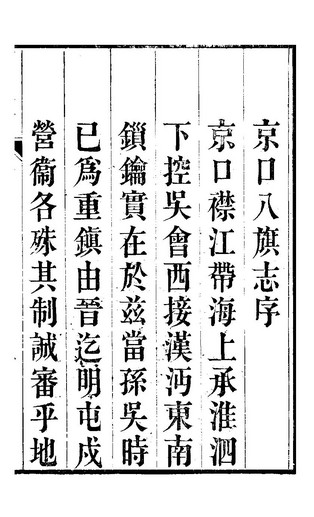 京口八旗志序
京口襟江帶海上承淮泗
下控吳會西接漢沔東南
鎖鑰實在於兹當孫吳時
已爲重鎭由晉迄明屯戍
營衞各殊其制誠審乎地